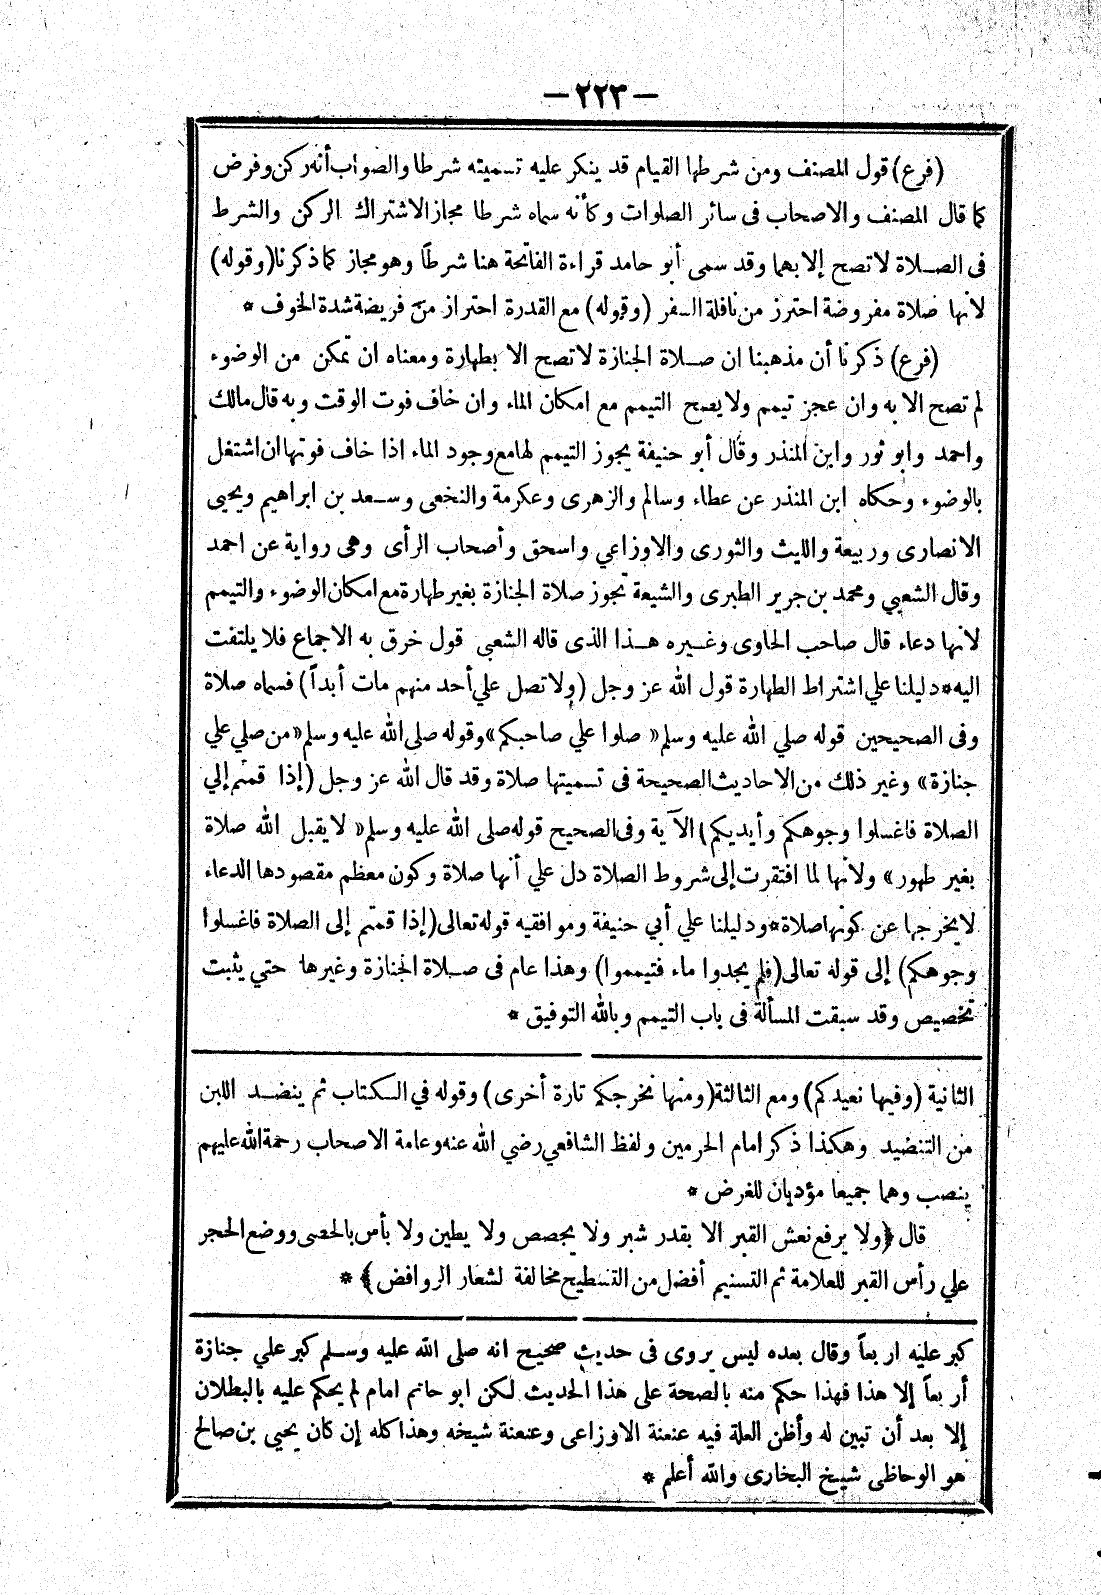 — ٢٢٣ —
(فرع) قول المصنف ومن شرطها القيام قد ينكر عليه تسميته شرطا والصواب أنه ركن وفرض
كما قال المصنف والاصحاب فى سائر الصلوات وكأنه سماه شرطا مجاز الاشتراك الركن والشرط
فى الصلاة لا تصح إلا بهما وقد سمى أبو حامد قراءة الفاتحة هنا شرطاً وهو مجاز كما ذكرنا (وقوله)
لانها صلاة مفروضة احترز من نافلة السفر (وقوله) مع القدرة احتراز من فريضة شدة الخوف *
(فرع) ذكرنا أن مذهبنا ان صلاة الجنازة لا تصح الا بطهارة ومعناه ان تمكن من الوضوء
لم تصح الا به وان عجز تيمم ولا يصح التيمم مع امكان الماء وان خاف فوت الوقت وبه قال مالك
واحمد وابو ثور وابن المنذر وقال أبو حنيفة يجوز التيمم لها مع وجود الماء اذا خاف فوتها ان اشتغل
بالوضوء وحكاه ابن المنذر عن عطاء وسالم والزهرى وعكرمة والنخعى وسعد بن ابراهيم ويحيى
الانصارى وربيعة والليث والثورى والاوزاعي واسحق وأصحاب الرأى وهى رواية عن احمد
وقال الشعبي ومحمد بن جرير الطبرى والشيعة تجوز صلاة الجنازة بغير طهارة مع امكان الوضوء والتيمم
لانها دعاء قال صاحب الحاوى وغيره هذا الذى قاله الشعبى قول خرق به الاجماع فلا يلتفت
اليه * دليلنا علي اشتراط الطهارة قول الله عز وجل (ولا تصل علي أحد منهم مات أبداً) فسماه صلاة
وفى الصحيحين قوله صلي الله عليه وسلم « صلوا علي صاحبكم » وقوله صلى الله عليه وسلم « من صلي علي
جنازة » وغير ذلك من الاحاديث الصحيحة فى تسميتها صلاة وقد قال الله عز وجل (إذا قمتم إلي
الصلاة فاغسلوا وجوهكم وأيديكم) الآية وفى الصحيح قوله صلى الله عليه وسلم « لا يقبل الله صلاة
بغير طهور » ولانها لما افتقرت إلى شروط الصلاة دل علي أنها صلاة وكون معظم مقصودها الدعاء
لا يخرجها عن كونها صلاة * ودليلنا علي أبي حنيفة وموافقيه قوله تعالى (إذا قمتم إلى الصلاة فاغسلوا
وجوهكم) إلى قوله تعالى (فلم يجدوا ماء فتيمموا) وهذا عام فى صلاة الجنازة وغيرها حتي يثبت
تخصيص وقد سبقت المسألة فى باب التيمم وبالله التوفيق *
الثانية (وفيها نعيدكم) ومع الثالثة (ومنها نخرجكم تارة أخرى) وقوله في الكتاب ثم ينضد اللبن
من التنضيد وهكذا ذكر امام الحرمين ولفظ الشافعي رضي الله عنه وعامة الاصحاب رحمة الله عليهم
ينصب وهما جميعا مؤديان للغرض *
قال ﴿ولا يرفع نعش القبر الا بقدر شبر ولا يجصص ولا يطين ولا بأس بالحصى ووضع الحجر
علي رأس القبر للعلامة ثم التسنيم أفضل من التسطيح مخالفة لشعار الروافض﴾ *
كبر عليه اربعاً وقال بعده ليس يروى فى حديث صحيح انه صلى الله عليه وسلم كبر علي جنازة
أربعاً إلا هذا فهذا حكم منه بالصحة على هذا الحديث لكن ابو حاتم امام لم يحكم عليه بالبطلان
إلا بعد أن تبين له وأظن العلة فيه عنعنة الاوزاعى وعنعنة شيخه وهذا كله إن كان يحيى بن صالح
هو الوحاظى شيخ البخارى والله أعلم *